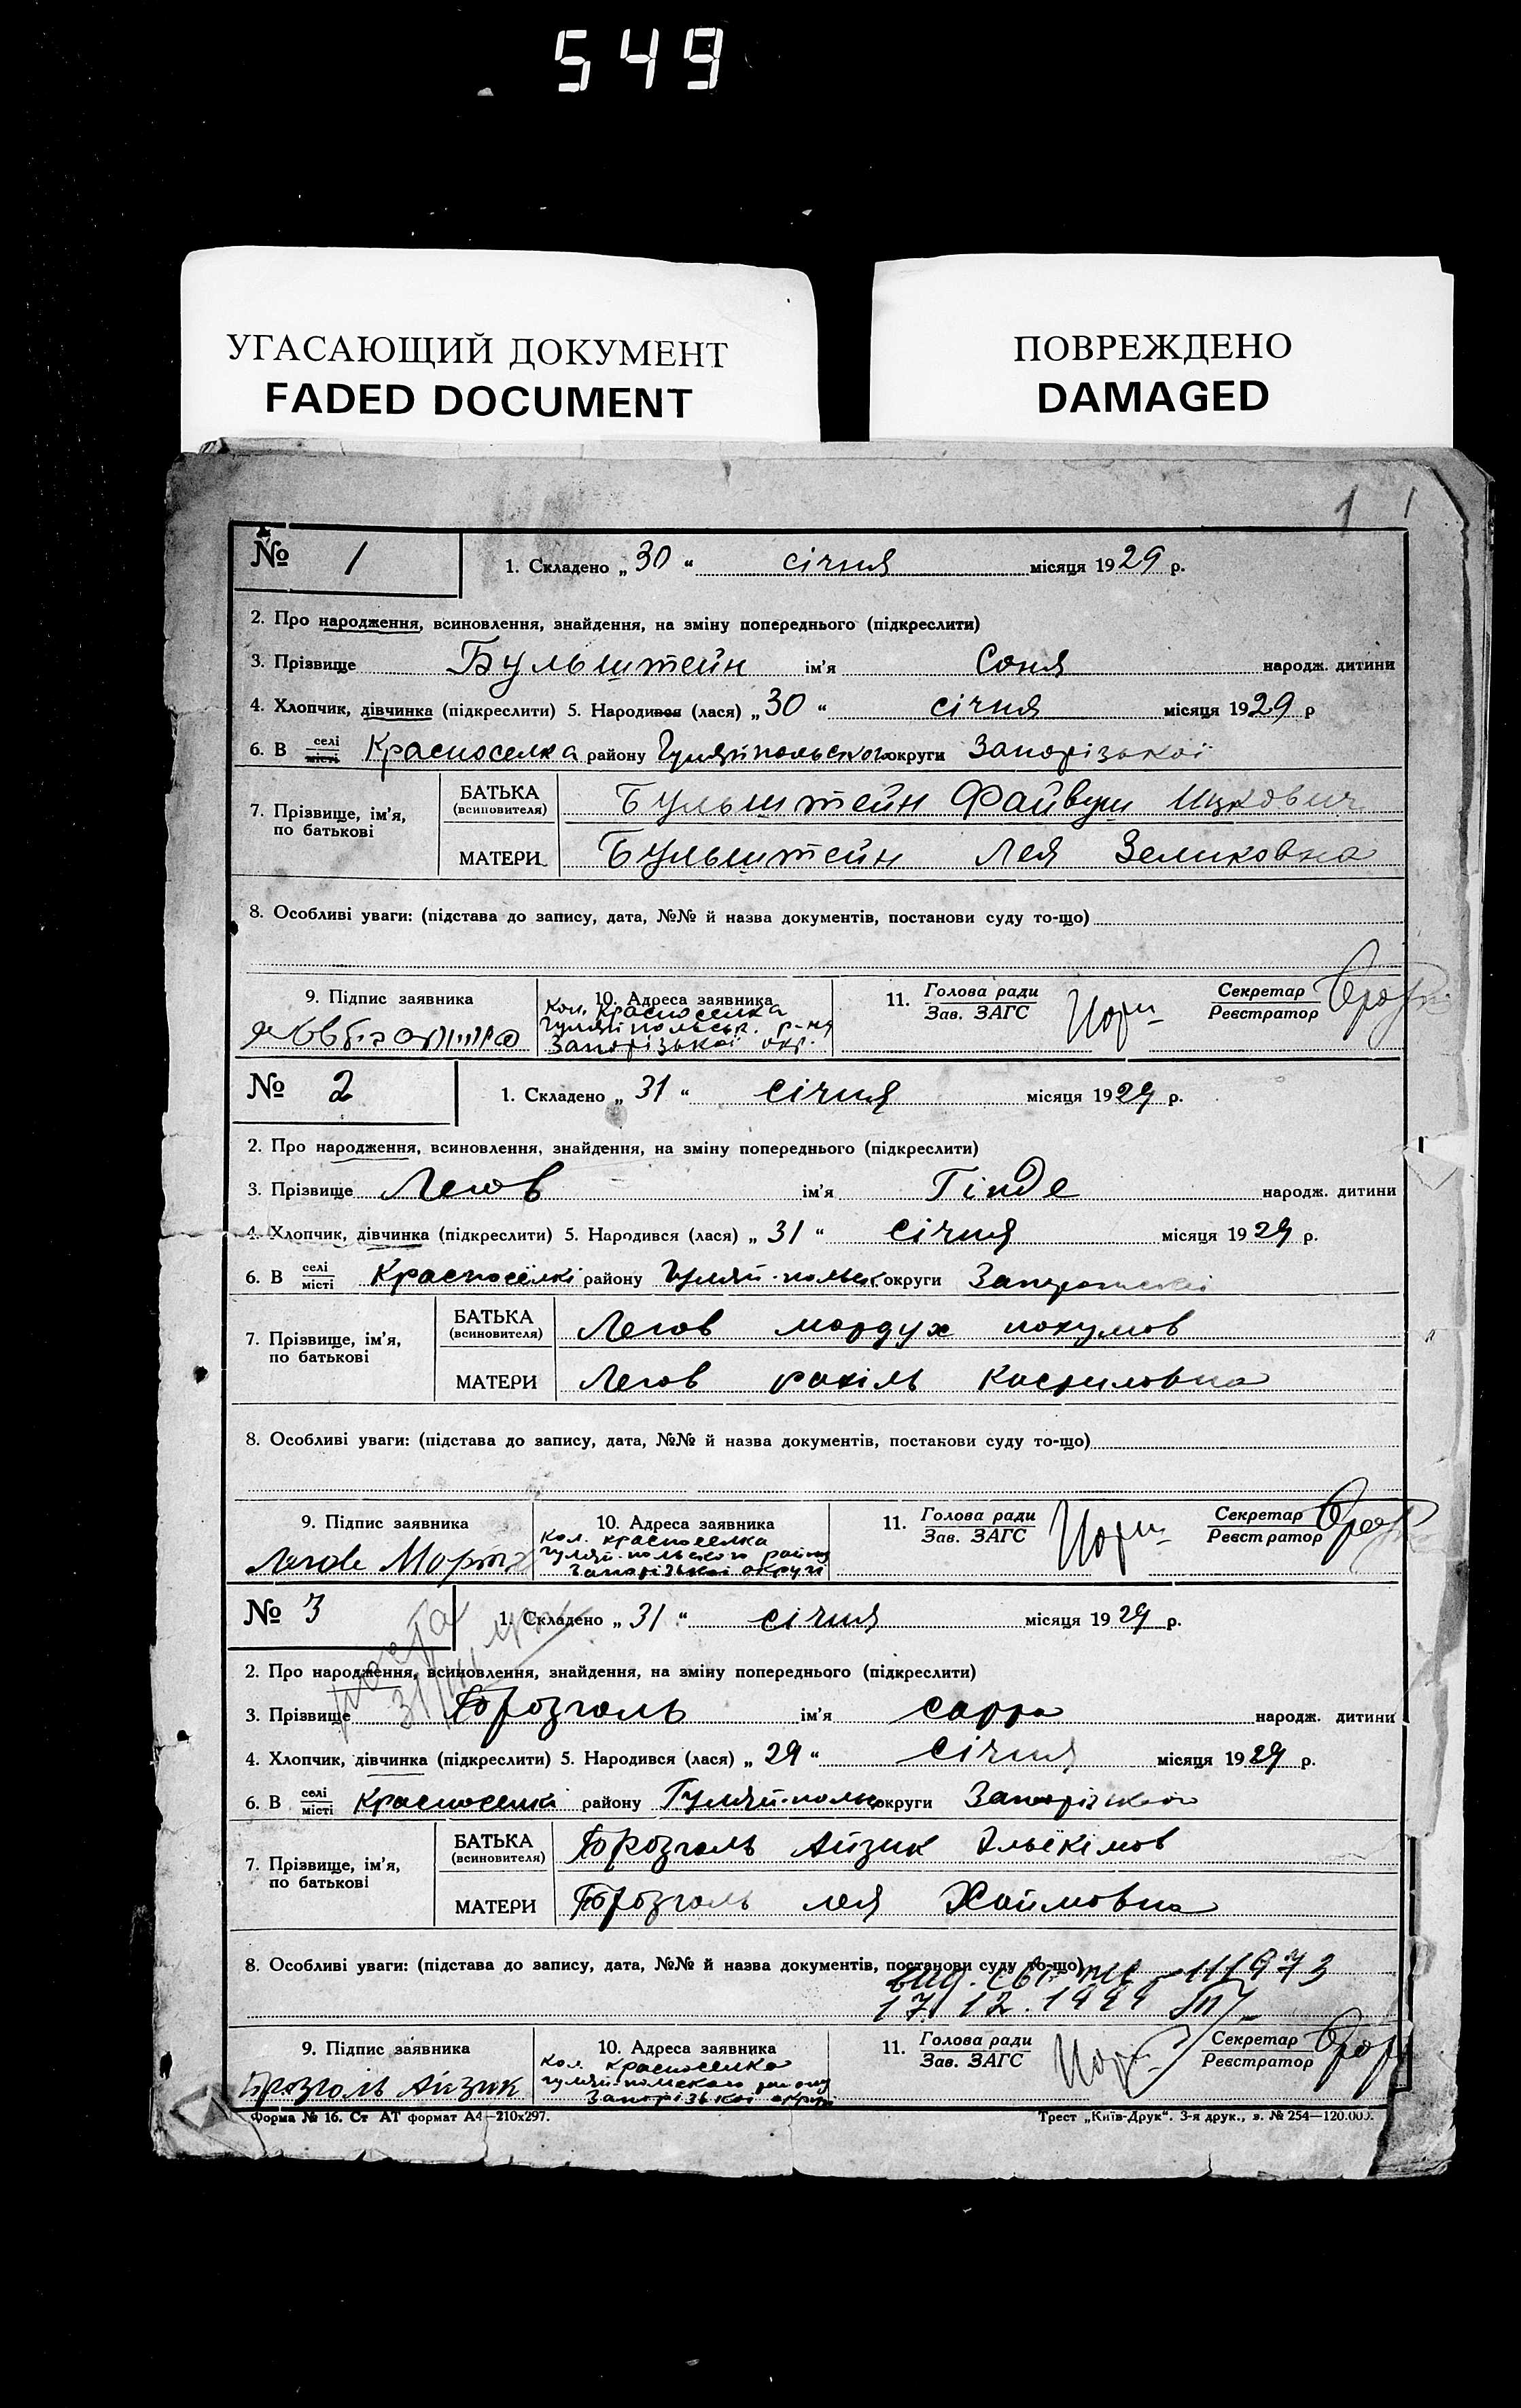 549
УГАСАЮЩИЙ ДОКУМЕНТ
FADED DOCUMENT
ПОВРЕЖДЕНО
DAMAGED
1
№ 1 1. Складено „30“ січня місяця 1929 р.
2. Про народження, всиновлення, знайдення, на зміну попереднього (підкреслити)
3. Прізвище Бульштейн ім'я Соня народж. дитини
4. Хлопчик, дівчинка (підкреслити) 5. Народився (лася) „30“ січня місяця 1929 р
6. В селі/місті Красноселка району Гуляйпольського округи Запорізької
7. Прізвище, ім'я, по батькові
БАТЬКА (всиновителя) Бульштейн Файвуш Ицкович
МАТЕРИ Бульштейн Лея Зеликовна
8. Особливі уваги: (підстава до запису, дата, №№ й назва документів, постанови суду то-що)
9. Підпис заявника
10. Адреса заявника
кол. Красноселка
Гуляйпольськ. р-ня
Запорізької окр.
11. Голова ради
Зав. ЗАГС
Секретар
Реєстратор
№ 2 1. Складено „31“ січня місяця 1929 р.
2. Про народження, всиновлення, знайдення, на зміну попереднього (підкреслити)
3. Прізвище Легов ім'я Гінде народж. дитини
4. Хлопчик, дівчинка (підкреслити) 5. Народився (лася) „31“ січня місяця 1929 р.
6. В селі/місті Красноселкі району Гуляй-польск округи
7. Прізвище, ім'я, по батькові
БАТЬКА (всиновителя) Легов мордух нохумов
МАТЕРИ Легов рахіль
8. Особливі уваги: (підстава до запису, дата, №№ й назва документів, постанови суду то-що)
9. Підпис заявника
10. Адреса заявника
кол. красноселка
гуляй-польского району
запорізькоі округі
11. Голова ради
Зав. ЗАГС
Секретар
Реєстратор
№ 3 1. Складено „31“ січня місяця 1929 р.
2. Про народження, всиновлення, знайдення, на зміну попереднього (підкреслити)
3. Прізвище Брозголь ім'я сарра народж. дитини
4. Хлопчик, дівчинка (підкреслити) 5. Народився (лася) „29“ січня місяця 1929 р.
6. В селі/місті Красноселкі району Гуляй-польск округи
7. Прізвище, ім'я, по батькові
БАТЬКА (всиновителя) Брозголь Айзик Ельекімов
МАТЕРИ Брозголь лея Хаймовна
8. Особливі уваги: (підстава до запису, дата, №№ й назва документів, постанови суду то-що)
9. Підпис заявника
Брозголь Айзик
10. Адреса заявника
кол. красноселка
гуляй-польского району
Запорізькоі округі
11. Голова ради
Зав. ЗАГС
Секретар
Реєстратор
Форма № 16. Ст АТ формат А4—210х297.
Трест „Київ-Друк“. 3-я друк., з. № 254—120.000.